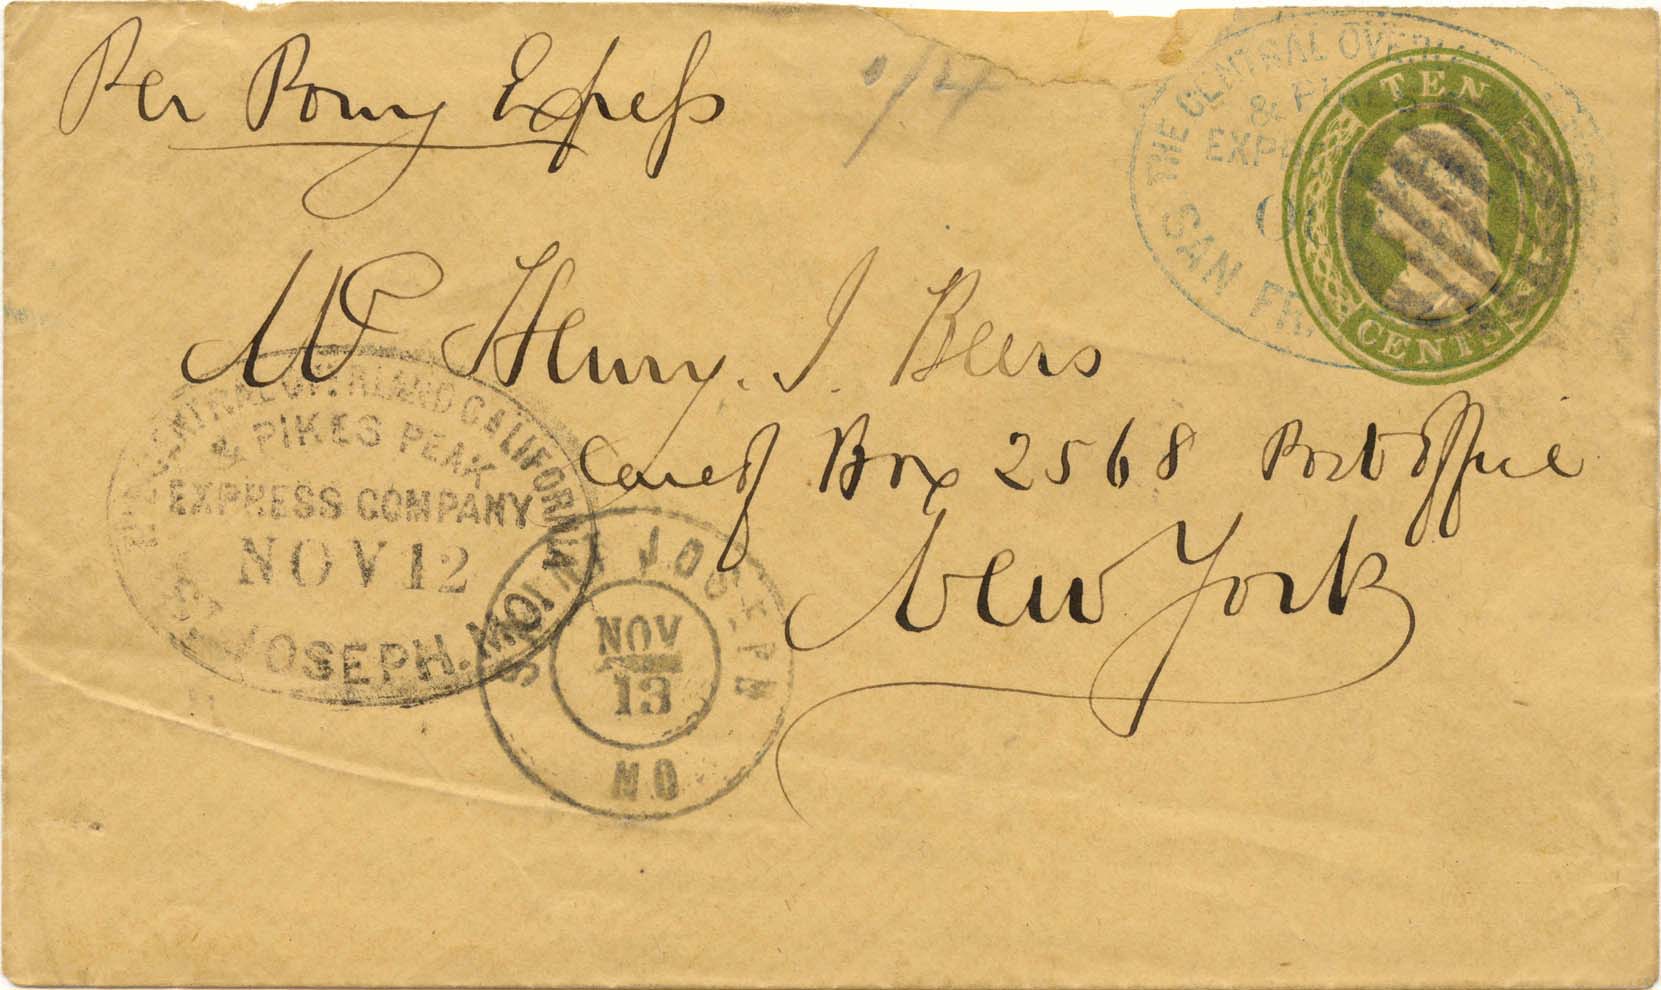 Per Pony Express
THE CENTRAL OVERLAND
&
SAN FR
TEN
CENTS
Mr Henry. J. Beers
Care of Box 2568 Post Office
New York
CENTRAL OVERLAND CALIFORNIA
& PIKES PEAK
EXPRESS COMPANY
NOV 12
JOSEPH. MO.
SAINT JOSEPH
NOV
13
MO